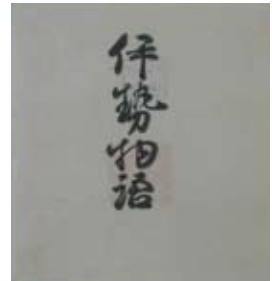 伊勢物語